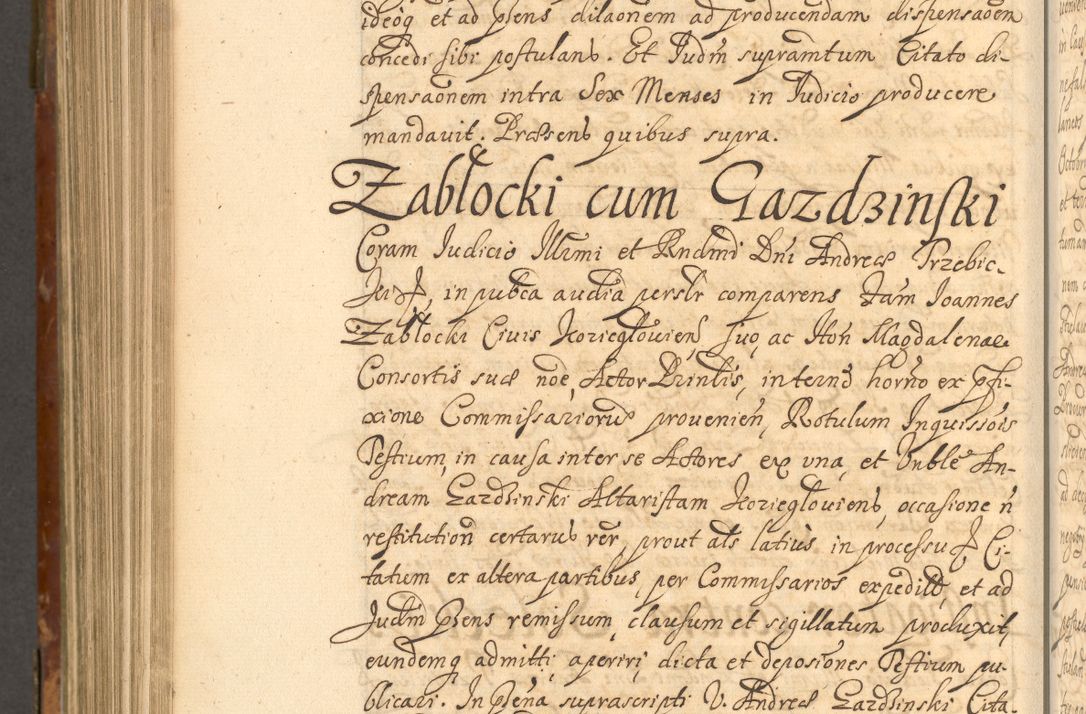 ideoq et ad pñens dilaõnem ad producendam dispensaõem
concedi sibi postulans. Et Iudm supramtum Citato di-
spensaõnem intra Sex Menses in Iudicio producere
mandavit. Præsens quibus supra.
Zabłocki cum Gazdzinski
Coram Iudicio Illmi et Rndmi Dni Andreæ Trzebic-
in pubca audia persłr comparens Fam Ioannes
Zabłocki Civis Kozieglovien suo, ac Hon Magdalenæ
Consortis suæ noe, Actor Prinlis, in termo horno ex pfi-
xione Commissariorũ provenien, Rotulum Inquissois
Testium, in causa inter se Actores ex una, et Vnble An-
dream Gazdzinski Altaristam Koziegloviens, occasione n
restitution certarus rer, prout als latius in processu Ci-
tatum ex altera partibus, per Commissarios expedilt, et ad
Iudm pñens remissum, clausum et sigillatum produxit,
eundemq admitti, aperiri, dicta et deposiones Testium pu-
blicari. In pñena suprascripti V. Andreæ Gazdzinski Cita-